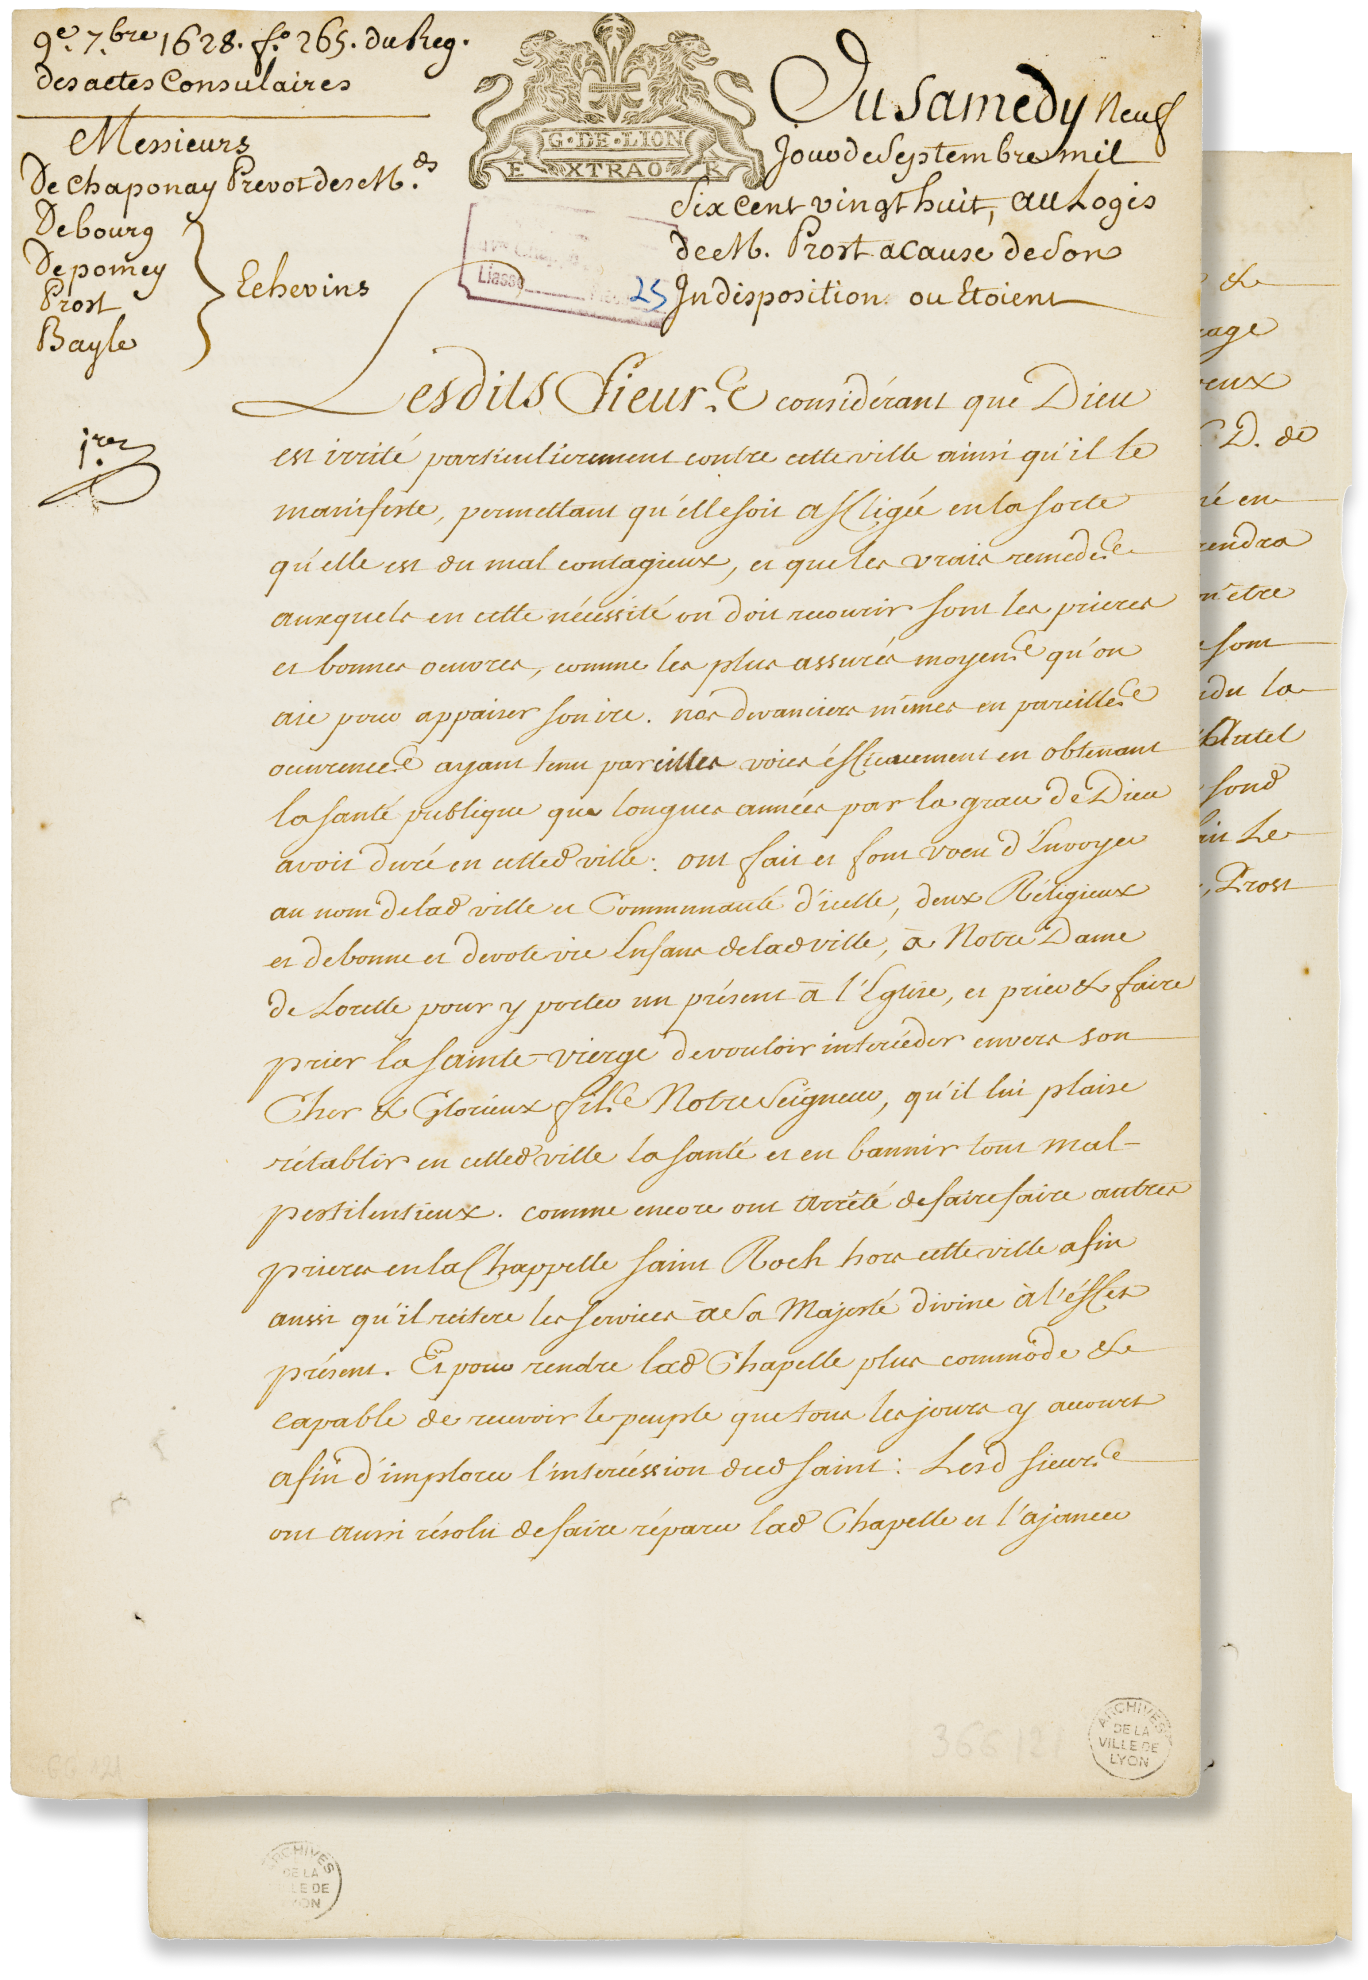 9.e 7.bre 1628. f.o 265. du Reg.
des actes Consulaires
Messieurs
De Chaponay Prevot des M.ds
Debourg
Depomey
Prost
Bayle
Echevins
1.res
G·DE·LION
EXTRAO·R
Du Samedy neuf
Jour de Septembre mil
Six cent vingt huit, au Logis
de M. Prost a cause de Son
Indisposition ou Etoient
Liasse
25
Lesdits Sieurs considérant que Dieu
est irrité particulierement contre cette ville ainsi qu'il le
manifeste, permettant qu'elle soit affligée en la sorte
qu'elle est du mal contagieux, et que les vrais remedes
auxquels en cette nécéssité on doit recourir sont les prieres
et bonnes oeuvres, comme les plus assurés moyens qu'on
aie pour appaiser son ire. nos devanciers mêmes en pareilles
ocurences ayant tenu pareilles voies éfficacement en obtenant
la santé publique que longues années par la grace de Dieu
avoit duré en cetted ville: ont fait et font voeu d'Envoyer
au nom de lad ville et Communauté d'icelle, deux Réligieux
et de bonne et devote vie Enfans de lad ville, à Notre Dame
de Lorette pour y porter un présent à l'Eglise, et prier & faire
prier la sainte vierge de vouloir intercéder envers son
Cher & Glorieux fils Notre Seigneur, qu'il lui plaise
rétablir en cetted ville la santé et en bannir tout mal
pestilentieux. comme encore ont arrêté de faire faire autres
prieres en la Chappelle saint Roch hors cette ville afin
aussi qu'il reitere les services à Sa Majesté divine à l'éffet
présent. Et pour rendre lad Chapelle plus commode &
capable de recevoir le peuple que tous les jours y accourt
afin d'implorer l'intercéssion dud saint: Lesd sieurs
ont aussi résolu de faire réparer lad Chapelle et l'ajancer
ARCHIVES
DE LA
VILLE DE
LYON
366 121
GG 121
&
D. de
en
etre
sont
la
Autel
fond
Le
, Prost
ARCHIVES
DE LA
VILLE DE
LYON